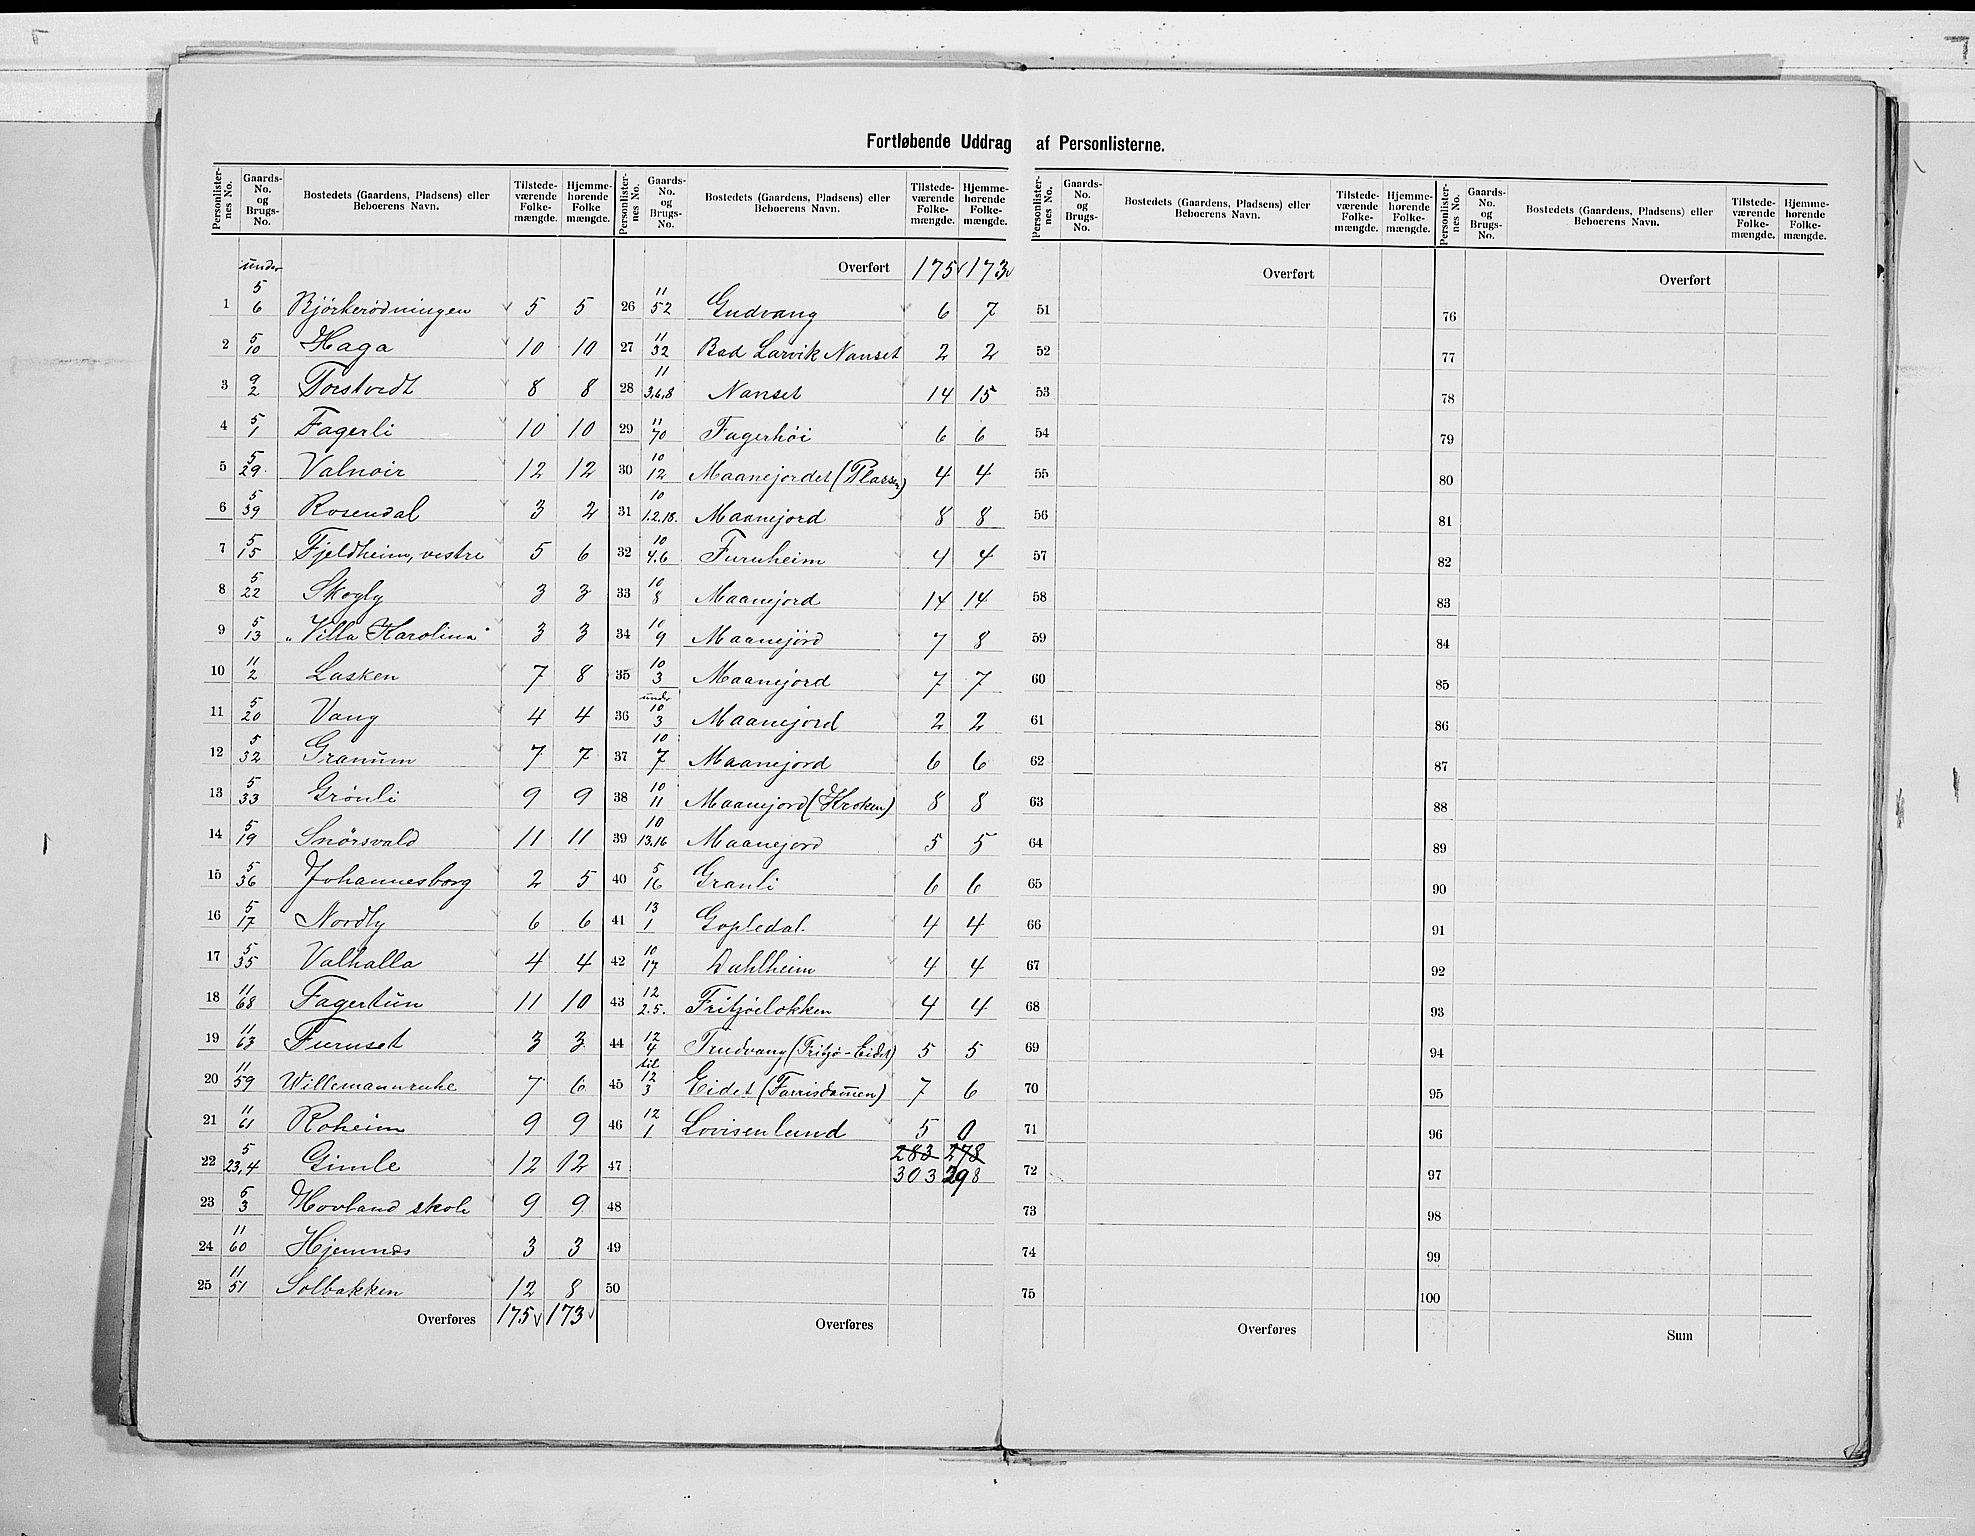 Fortløbende Uddrag af Personlisterne.
Personlisternes No. Gaards-No. og Brugs-No. Bostedets (Gaardens, Pladsens) eller Beboerens Navn. Tilstedeværende Folkemængde. Hjemmehørende Folkemængde.
under
1 5/6 Bjørkerødningen 5 5
2 5/10 Haga 10 10
3 9/2 Torstvedt 8 8
4 5/1 Fagerli 10 10
5 5/29 Valnoir 12 12
6 5/39 Rosendal 3 2
7 5/15 Fjeldheim, vestre 5 6
8 5/22 Skogly 3 3
9 5/13 „Villa Karolina" 3 3
10 11/2 Lasken 7 8
11 5/20 Vang 4 4
12 5/32 Granum 7 7
13 5/33 Grønli 9 9
14 5/19 Snørsvald 11 11
15 5/36 Johannesborg 2 5
16 5/17 Nordly 6 6
17 5/35 Valhalla 4 4
18 11/68 Fagertun 11 10
19 11/63 Furuset 3 3
20 11/59 Willemannruhe 7 6
21 11/61 Roheim 9 9
22 5/23,4 Gimle 12 12
23 5/3 Hovland skole 9 9
24 11/60 Hjemnes 3 3
25 11/51 Solbakken 12 8
Overføres 175 173
Personlisternes No. Gaards-No. og Brugs-No. Bostedets (Gaardens, Pladsens) eller Beboerens Navn. Tilstedeværende Folkemængde. Hjemmehørende Folkemængde.
Overført 175 173
26 11/52 Gudvang 6 7
27 11/32 Bad Larvik Nanset 2 2
28 11/3,6,8 Nanset 14 15
29 11/70 Fagerhøi 6 6
30 10/12 Maanejordet (Plassen) 4 4
31 10/1.2.18. Maanejord 8 8
32 10/4.6 Furuheim 4 4
33 10/8 Maanejord 14 14
34 10/9 Maanejord 7 8
35 10/3 Maanejord 7 7
under
36 10/3 Maanejord 2 2
37 10/7 Maanejord 6 6
38 10/11 Maanejord (Kroken) 8 8
39 10/13.16 Maanejord 5 5
40 5/16 Granli 6 6
41 13/1 Gopledal. 4 4
42 10/17 Dahlheim 4 4
43 12/2.5. Fritzøelokken 4 4
44 12/4 Trudvang (Fritzø-Eidet) 5 5
til
45 12/3 Eidet (Farrisdammen) 7 6
46 12/1 Lovisenlund 5 0
283 278
47 303 298
48
49
50
Overføres
Personlisternes No. Gaards-No. og Brugs-No. Bostedets (Gaardens, Pladsens) eller Beboerens Navn. Tilstedeværende Folkemængde. Hjemmehørende Folkemængde.
Overført
51
52
53
54
55
56
57
58
59
60
61
62
63
64
65
66
67
68
69
70
71
72
73
74
75
Overføres
Personlisternes No. Gaards-No. og Brugs-No. Bostedets (Gaardens, Pladsens) eller Beboerens Navn. Tilstedeværende Folkemængde. Hjemmehørende Folkemængde.
Overført
76
77
78
79
80
81
82
83
84
85
86
87
88
89
90
91
92
93
94
95
96
97
98
99
100
Sum